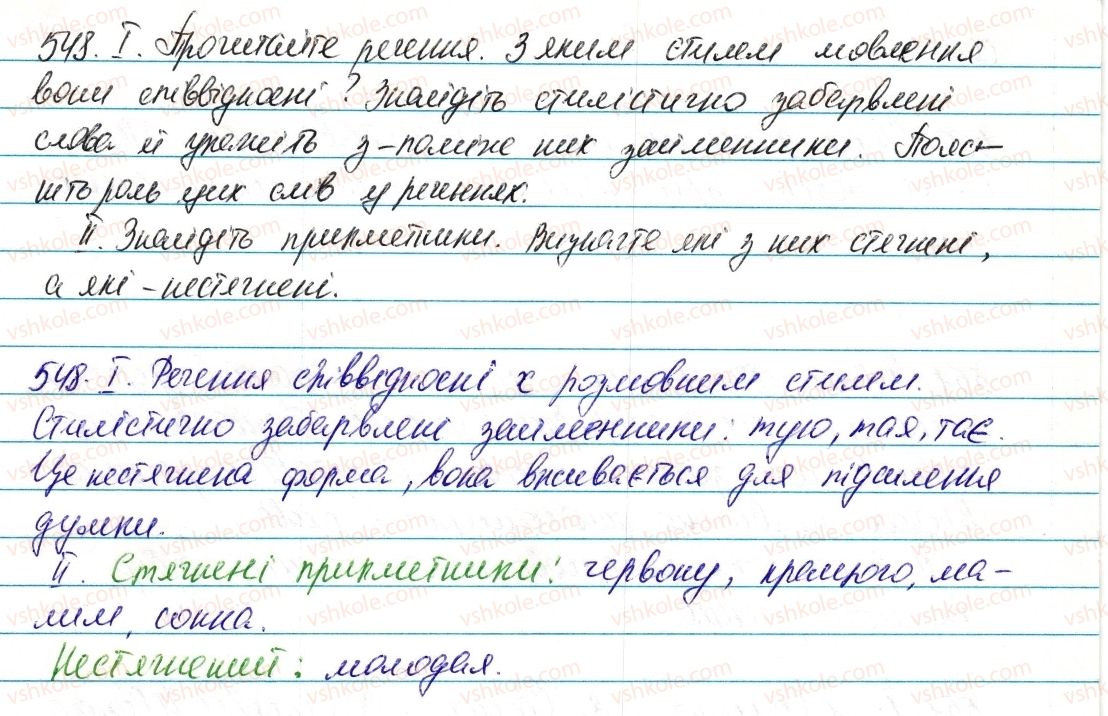 548. I. Прочитайте речення. З яким стилем мовлення
вони співвідносні? Знайдіть стилістично забарвлені
слова й укажіть з-поміж них займенники. Пояс-
ніть роль цих слів у реченнях.
II. Знайдіть прикметники. Визначте які з них стягнені,
а які - нестягнені.
548. I. Речення співвідносні х розмовним стилем.
Стилістично забарвлені займенники: тую, тая, тає.
Це нестягнена форма, вона вживається для підсилення
думки.
II. Стягнені прикметники: червону, храброго, ма-
лим, сонна.
Нестягнений: молодая.